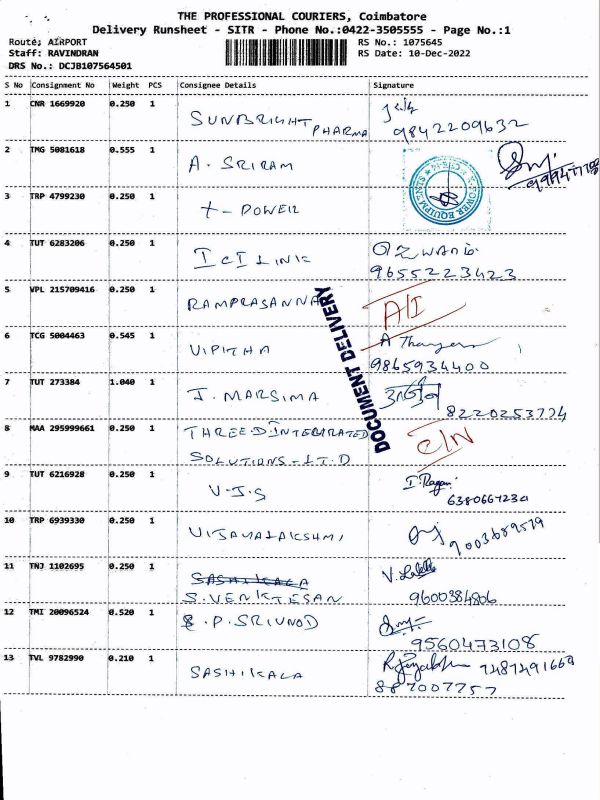 THE PROFESSIONAL COURIERS, Coimbatore
Delivery Runsheet - SITR - Phone No.:0422-3505555 - Page No.:1
Route: AIRPORT RS No.: 1075645
Staff: RAVINDRAN RS Date: 10-Dec-2022
DRS No.: DCJB107564501
S No Consignment No Weight PCS Consignee Details Signature
1 CNR 1669920 0.250 1 SUNBRIGHT PHARMA
9842209632
2 TMG 5081618 0.555 1 A. SRIRAM
3 TRP 4799230 0.250 1 t-POWER
POWER EQUIPMENTS
4 TUT 6283206 0.250 1
9655223423
5 VPL 215709416 0.250 1 RAMPRASANNA A/I
DOCUMENT DELIVERY
6 TCG 5004463 0.545 1 VIPITHA
9865934400
7 TUT 273384 1.040 1 J. MARSIMA
8220253774
8 MAA 295999661 0.250 1 THREE D INTEGRATED C/N
SOLUTIONS - LTD
9 TUT 6216928 0.250 1 V-J-S
10 TRP 6939330 0.250 1 VIJAYALAKSHMI
11 TNJ 1102695 0.250 1 SASHIKALA
S. VENKTESAN 9600384806
12 TMI 20096524 0.520 1 S.P. SRIVNOD
9560473108
13 TVL 9782990 0.210 1 SASHIKALA 7487491669
887007757